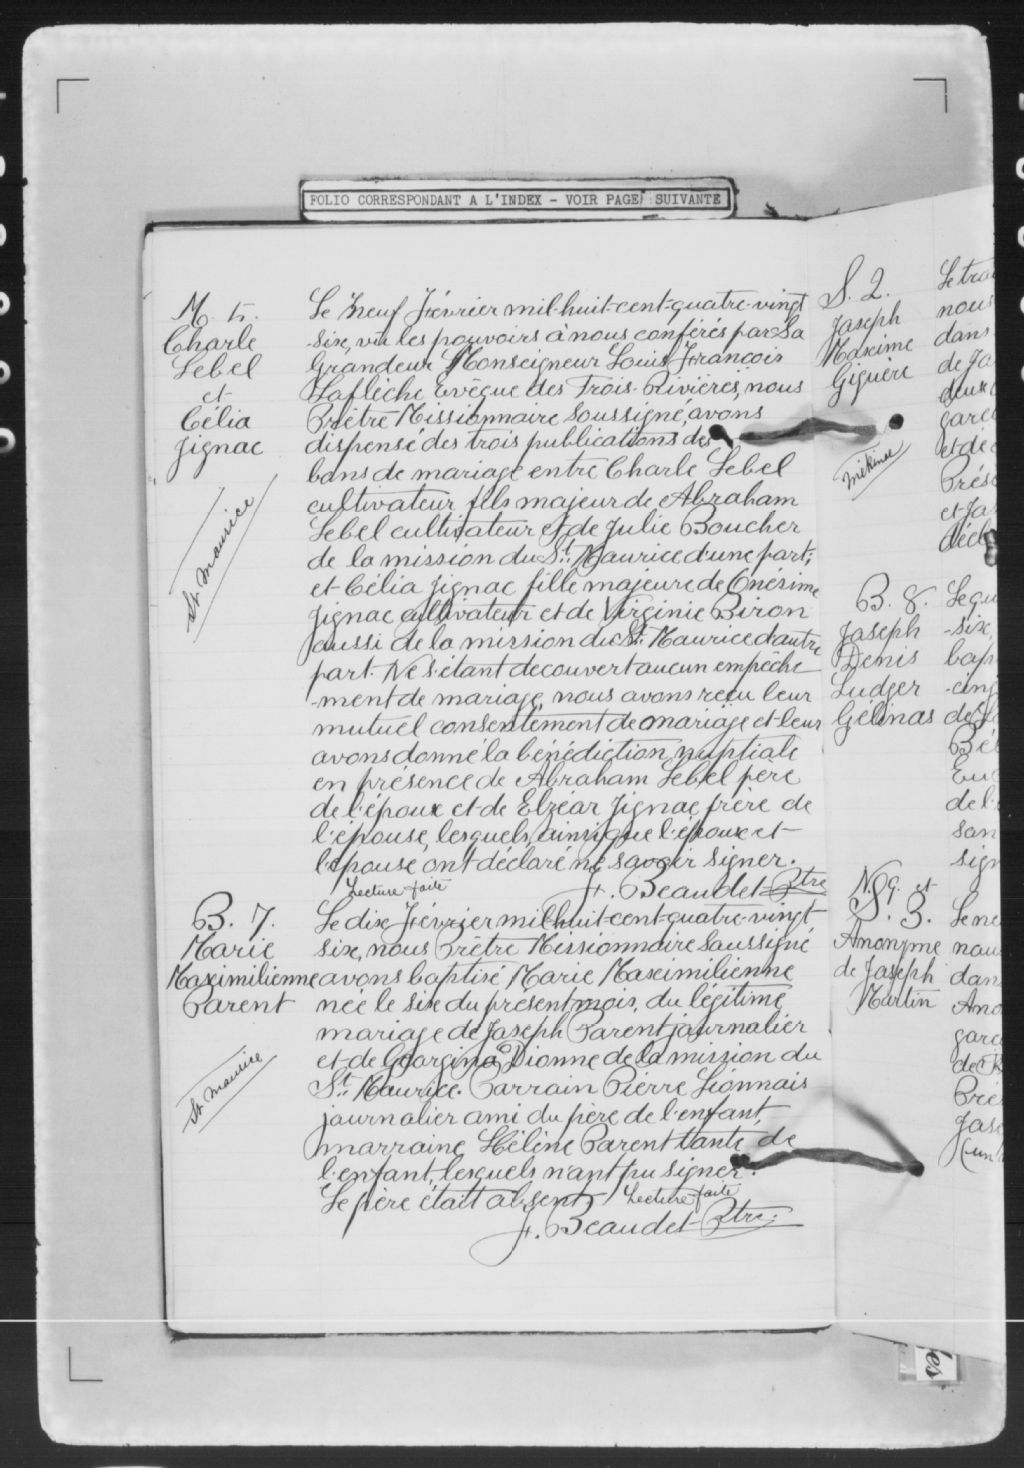 FOLIO CORRESPONDANT A L'INDEX - VOIR PAGE SUIVANTE
M. 4.
Charle
Lebel
et
Célia
Jignac
St Maurice
Le Neuf Février mil-huit-cent-quatre-vingt
-six, vu les pouvoirs à nous conférés par Sa
Grandeur Monseigneur Louis François
Laflèche Evêque des Trois-Rivières, nous
Prêtre Missionnaire Soussigné, avons
dispensé des trois publications des
bans de mariage entre Charle Lebel
cultivateur fils majeur de Abraham
Lebel cultivateur et de Julie Boucher
de la mission du St. Maurice d'une part;
et Célia Jignac fille majeure de Onésime
Jignac cultivateur et de Virginie Biron
aussi de la mission du St. Maurice d'autre
part. Ne s'étant decouvert aucun empêche
-ment de mariage, nous avons reçu leur
mutuel consentement de mariage et leur
avons donné la bénédiction nuptiale
en présence de Abraham Lebel père
de l'époux et de Elzéar Jignac frère de
l'épouse, lesquels, ainsi que l'époux et
l'épouse, ont déclaré ne savoir signer.
Lecture faite
J. Beaudet Ptre
B. 7.
Marie
Maximilienne
Parent
St Maurice
Le dix Février mil-huit-cent-quatre-vingt
six, nous Prêtre Missionnaire Soussigné
avons baptisé Marie Maximilienne
née le six du présent mois, du légitime
mariage de Joseph Parent journalier
et de Georgina Dionne de la mission du
St. Maurice. Parrain Pierre Lionnais
journalier ami du père de l'enfant,
marraine Hélène Parent tante de
l'enfant, lesquels n'ont pu signer.
Le père était absent. Lecture faite
J. Beaudet Ptre.
S. 2.
Joseph
Maxime
Giguère
Mékinac
B. 8.
Joseph
Denis
Ludger
Gélinas
N.q. et
S. 3.
Anonyme
de Joseph
Martin
nous
dans
et de
-six,
bap
de l'
son
sign
dans